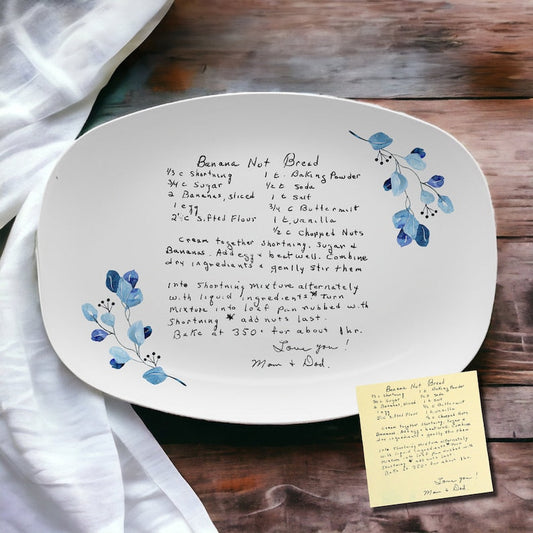 Banana Nut Bread
1/3 c Shortning 1 t. Baking Powder
3/4 c Sugar 1/2 t Soda
2 Bananas, sliced 1 t Salt
1 egg 3/4 c Buttermilt
2 1/2 c Sifted Flour 1 t. vanilla
1/2 c Chopped Nuts
Cream together shortning, sugar &
Bananas. Add egg & beat well. Combine
dry ingredients & gently Stir them
into Shortning mixture alternately
with liquid ingredients * Turn
Mixture into loaf pan rubbed with
Shortning * add nuts last.
Bake at 350° for about 1 hr.
Love you!
Mom & Dad.
Banana Nut Bread
1/3 c Shortning 1 t. Baking Powder
3/4 c Sugar Soda
2 Bananas, sliced 1 t Salt
1 egg 3/4 c Buttermilt
Sifted Flour 1 t. vanilla
1/2 c Chopped Nuts
Cream together shortning, Sugar &
Bananas. Add egg & beat well. Combine
dry ingredients & gently Stir them
into Shortning mixture alternately
with liquid ingredients * Turn
mixture into loaf pan rubbed with
Shortning * add nuts last.
Bake at 350° for about 1 hr.
Love you!
Mom & Dad